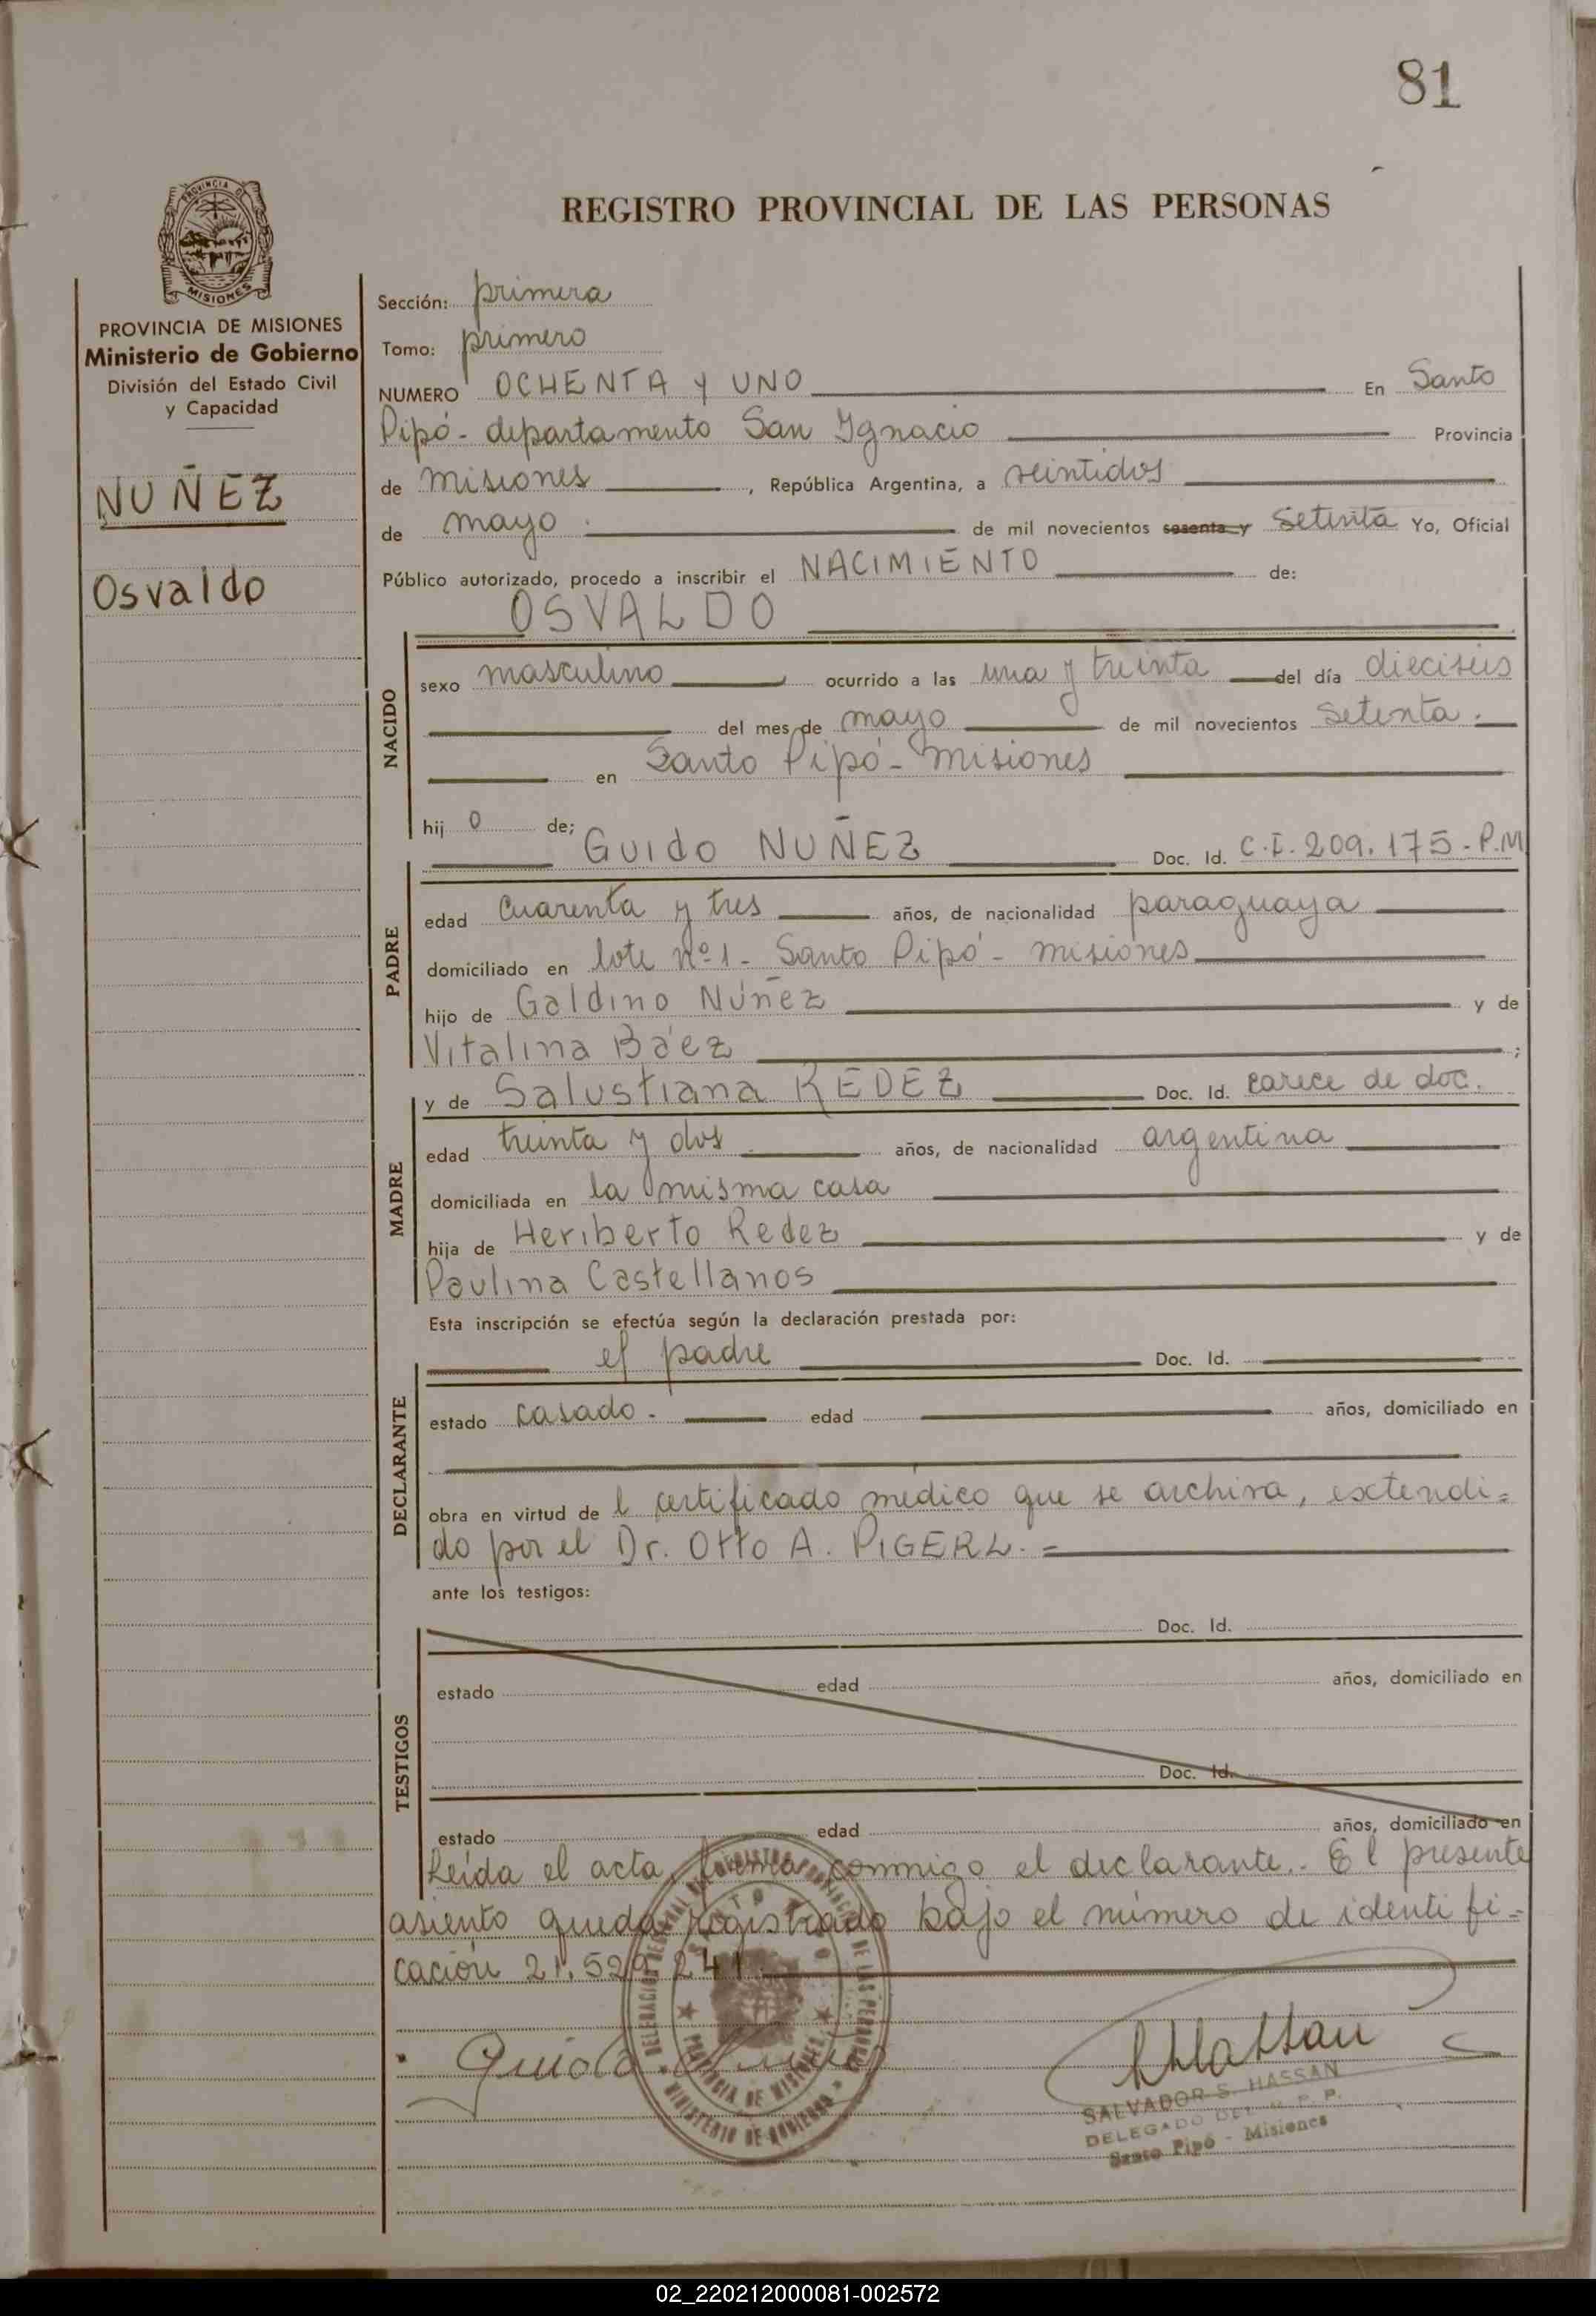 81
REGISTRO PROVINCIAL DE LAS PERSONAS
PROVINCIA DE MISIONES
PROVINCIA DE MISIONES
Ministerio de Gobierno
División del Estado Civil
y Capacidad
NUÑEZ
Osvaldo
Sección: primera
Tomo: primero
NUMERO OCHENTA y UNO En Santo
Pipó - departamento San Ignacio Provincia
de Misiones, República Argentina, a veintidos
de mayo. de mil novecientos sesenta y setenta Yo, Oficial
Público autorizado, procedo a inscribir el NACIMIENTO de:
OSVALDO
NACIDO
sexo masculino ocurrido a las una y treinta del día dieciseis
del mes de mayo de mil novecientos setenta.
en Santo Pipó - Misiones
hij o de;
PADRE
Guido NUÑEZ Doc. Id. C.I. 209.175 - P.M
edad cuarenta y tres años, de nacionalidad paraguaya
domiciliado en lote nº 1 - Santo Pipó - misiones
hijo de Galdino Núñez y de
Vitalina Báez ;
MADRE
y de Salustiana REDEZ Doc. Id. carece de doc.
edad treinta y dos años, de nacionalidad argentina
domiciliada en la misma casa
hija de Heriberto Redez y de
Paulina Castellanos
Esta inscripción se efectúa según la declaración prestada por:
DECLARANTE
el padre Doc. Id.
estado casado. edad años, domiciliado en
obra en virtud de l certificado médico que se archiva, extendi=
do por el Dr. Otto A. PIGERL. =
ante los testigos:
TESTIGOS
Doc. Id.
estado edad años, domiciliado en
Doc. Id.
estado edad años, domiciliado en
Leída el acta, firma conmigo el declarante. El presente
asiento queda registrado bajo el número de identifi=
cación 21.529.241
Guido Nuñez
SHassan
SALVADOR S. HASSAN
DELEGADO DEL R. P. P.
Santo Pipó - Misiones
PROVINCIA DE MISIONES
MINISTERIO DE GOBIERNO
02_220212000081-002572